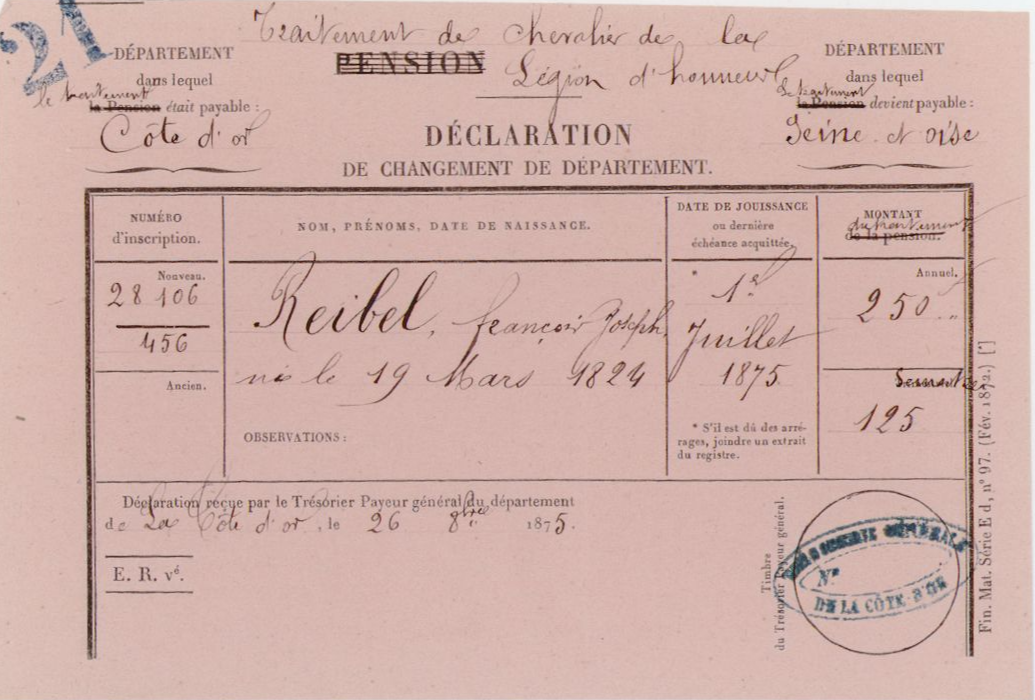 21
Traitement de Chevalier de la
PENSION
Légion d'honneur
DÉPARTEMENT
dans lequel
le traitement
la Pension était payable :
Côte d'or
DÉPARTEMENT
dans lequel
le traitement
la Pension devient payable :
Seine et oise
DÉCLARATION
DE CHANGEMENT DE DÉPARTEMENT.
NUMÉRO
d'inscription.
NOM, PRÉNOMS, DATE DE NAISSANCE.
DATE DE JOUISSANCE
ou dernière
échéance acquittée.
MONTANT
du traitement
de la pension.
Nouveau.
28 106
456
Ancien.
Reibel, françois Joseph,
né le 19 Mars 1824
OBSERVATIONS :
* 1er
Juillet
1875
* S'il est dû des arré-
rages, joindre un extrait
du registre.
Annuel.
250 "
125
Déclaration reçue par le Trésorier Payeur général du département
de La Côte d'or, le 26 8bre 1875.
E. R. vé.
Timbre
du Trésorier Payeur général.
GÉNÉRALE
No
DE LA CÔTE D'OR
Fin. Mat. Série E d, n° 97. (Fév. 1872.) [ ]